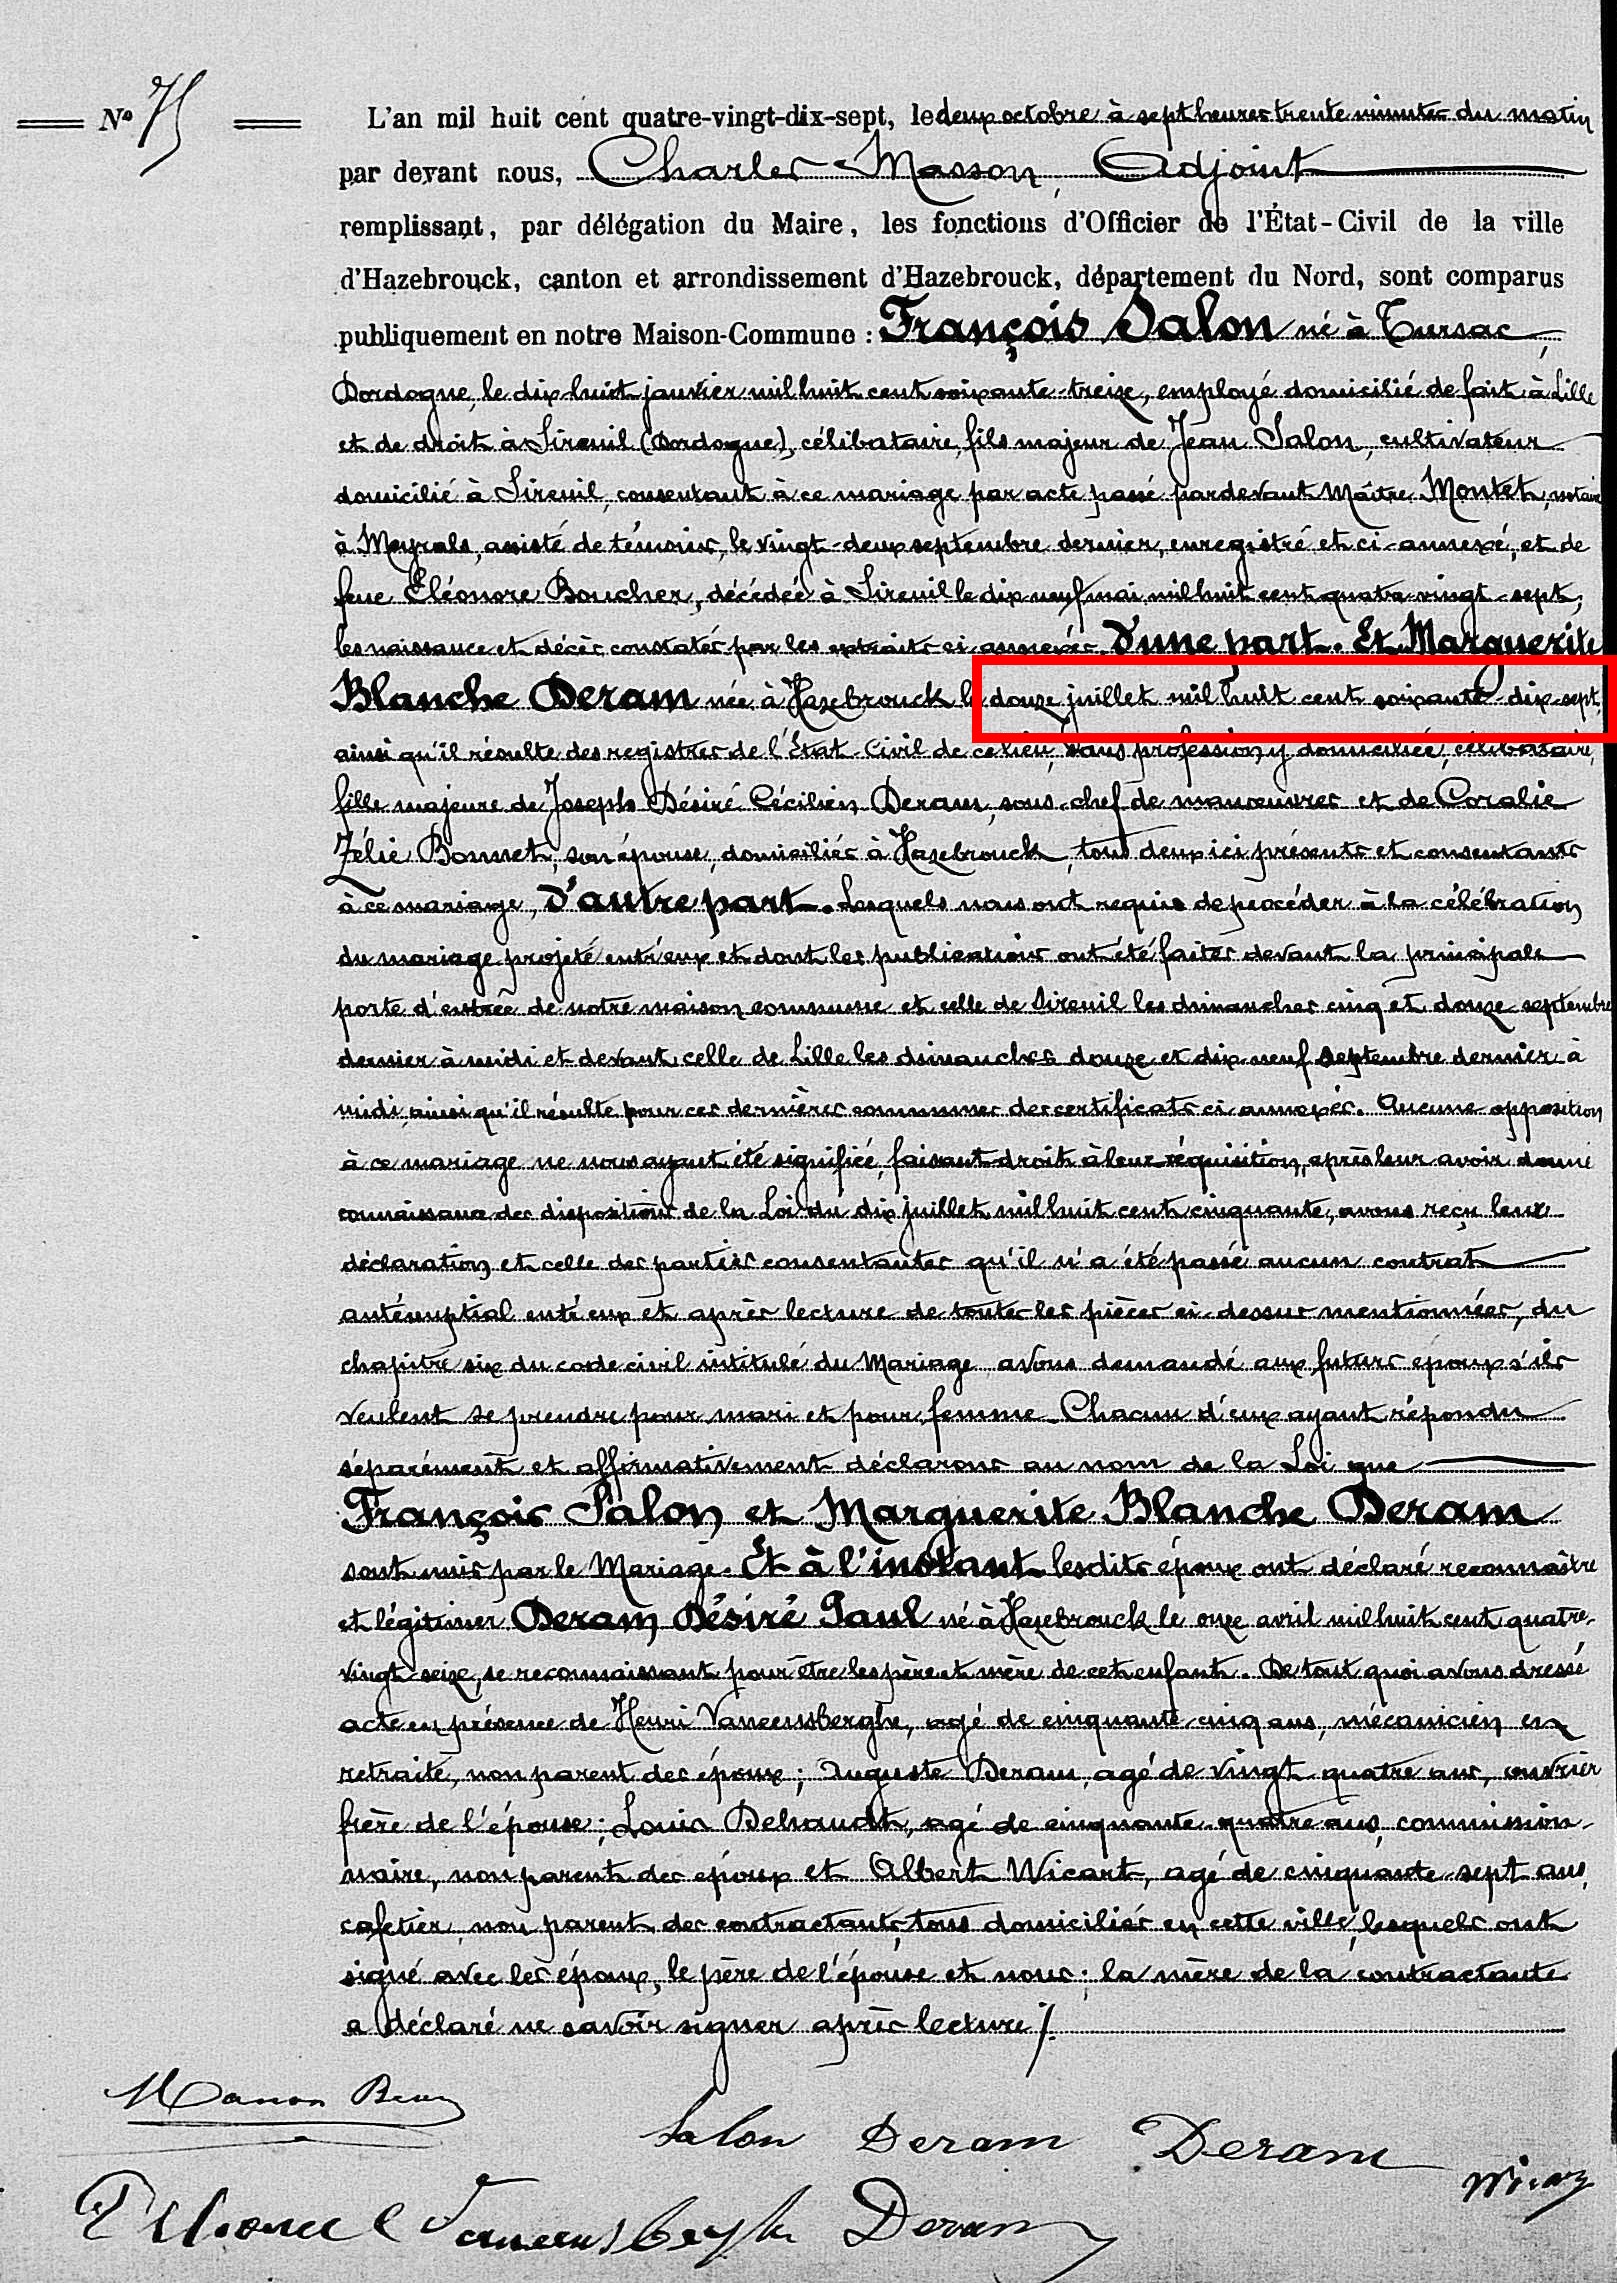 N° 75
L'an mil huit cent quatre-vingt-dix-sept, le deux octobre à sept heures trente minutes du matin
par devant nous, Charles Masson, Adjoint
remplissant, par délégation du Maire, les fonctions d'Officier de l'État-Civil de la ville
d'Hazebrouck, canton et arrondissement d'Hazebrouck, département du Nord, sont comparus
publiquement en notre Maison-Commune : François Salon né à Tursac,
Dordogne, le dix-huit janvier mil huit cent soixante-treize, employé domicilié de fait à Lille
et de droit à Sireuil (Dordogne), célibataire, fils majeur de Jean Salon, cultivateur
domicilié à Sireuil, consentant à ce mariage par acte passé pardevant Maître Montet, notaire
à Meyrals, assisté de témoins, le vingt-deux septembre dernier, enregistré et ci-annexé, et de
feue Eléonore Boucher, décédée à Sireuil le dix neuf mai mil huit cent quatre vingt-sept,
les naissance et décès constatés par les extraits ci annexés. D'une part. Et Marguerite
Blanche Deram née à Hazebrouck le douze juillet mil huit cent soixante-dix-sept,
ainsi qu'il résulte des registres de l'Etat-Civil de ce lieu, sans profession, y domiciliée, célibataire,
fille majeure de Joseph Désiré Cécilien Deram, sous-chef de manœuvres et de Coralie
Zélie Bonnet, son épouse, domiciliés à Hazebrouck, tous deux ici présents et consentants
à ce mariage, D'autre part. Lesquels nous ont requis de procéder à la célébration
du mariage projeté entr'eux et dont les publications ont été faites devant la principale
porte d'entrée de notre maison commune et celle de Sireuil les dimanches cinq et douze septembre
dernier à midi et devant celle de Lille les dimanches douze et dix-neuf septembre dernier à
midi, ainsi qu'il résulte pour ces dernières communes des certificats ci annexés. Aucune opposition
à ce mariage ne nous ayant été signifiée, faisant droit à leur réquisition, après leur avoir donné
connaissance des dispositions de la Loi du dix juillet mil huit cent cinquante, avons reçu leur
déclaration et celle des parties consentantes qu'il n'a été passé aucun contrat
anténuptial entr'eux et après lecture de toutes les pièces ci-dessus mentionnées, du
chapitre six du code civil intitulé du Mariage avons demandé aux futurs époux s'ils
veulent se prendre pour mari et pour femme. Chacun d'eux ayant répondu
séparément et affirmativement déclarons au nom de la Loi que
François Salon et Marguerite Blanche Deram
sont unis par le Mariage. Et à l'instant lesdits époux ont déclaré reconnaître
et légitimer Deram Désiré Paul né à Hazebrouck le onze avril mil huit cent quatre-
vingt-seize, se reconnaissant pour être les père et mère de cet enfant. De tout quoi avons dressé
acte en présence de Henri Vaneenssberghe, agé de cinquante-cinq ans, mécanicien en
retraite, non parent des époux ; Auguste Deram, agé de vingt-quatre ans, ouvrier
frère de l'épouse ; Louis Dehaudt, agé de cinquante-quatre ans, commission-
naire, non parent des époux et Albert Wicart, agé de cinquante-sept ans,
cafetier, non parent des contractants, tous domiciliés en cette ville, lesquels ont
signé avec les époux, le père de l'épouse et nous ; la mère de la contractante
a déclaré ne savoir signer après lecture /.
Salon Deram Deram
Deram